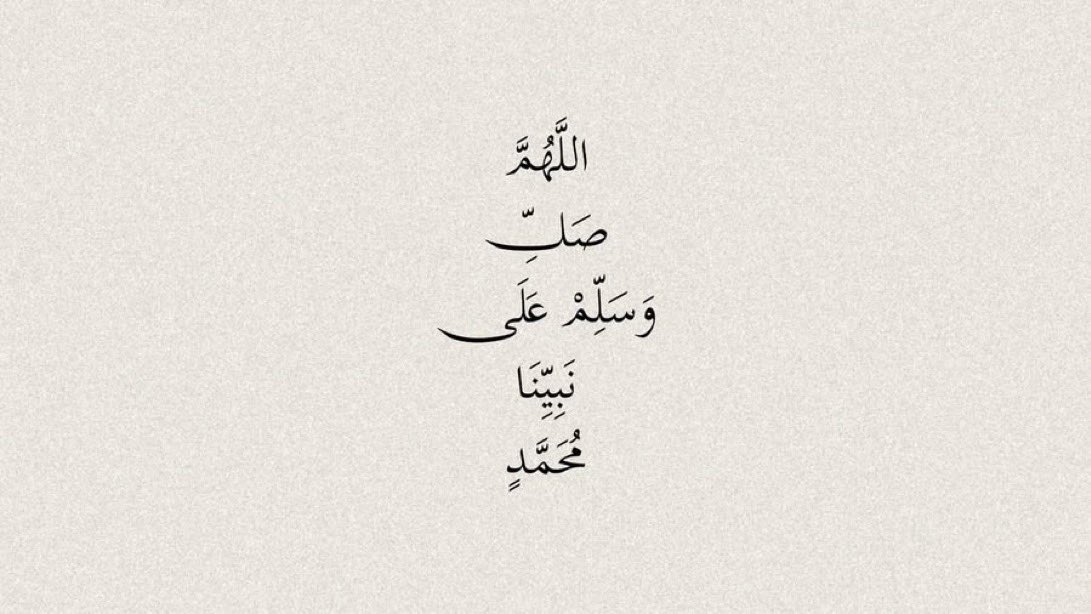 اللَّهُمَّ
صَلِّ
وَسَلِّمْ عَلَى
نَبِيِّنَا
مُحَمَّدٍ